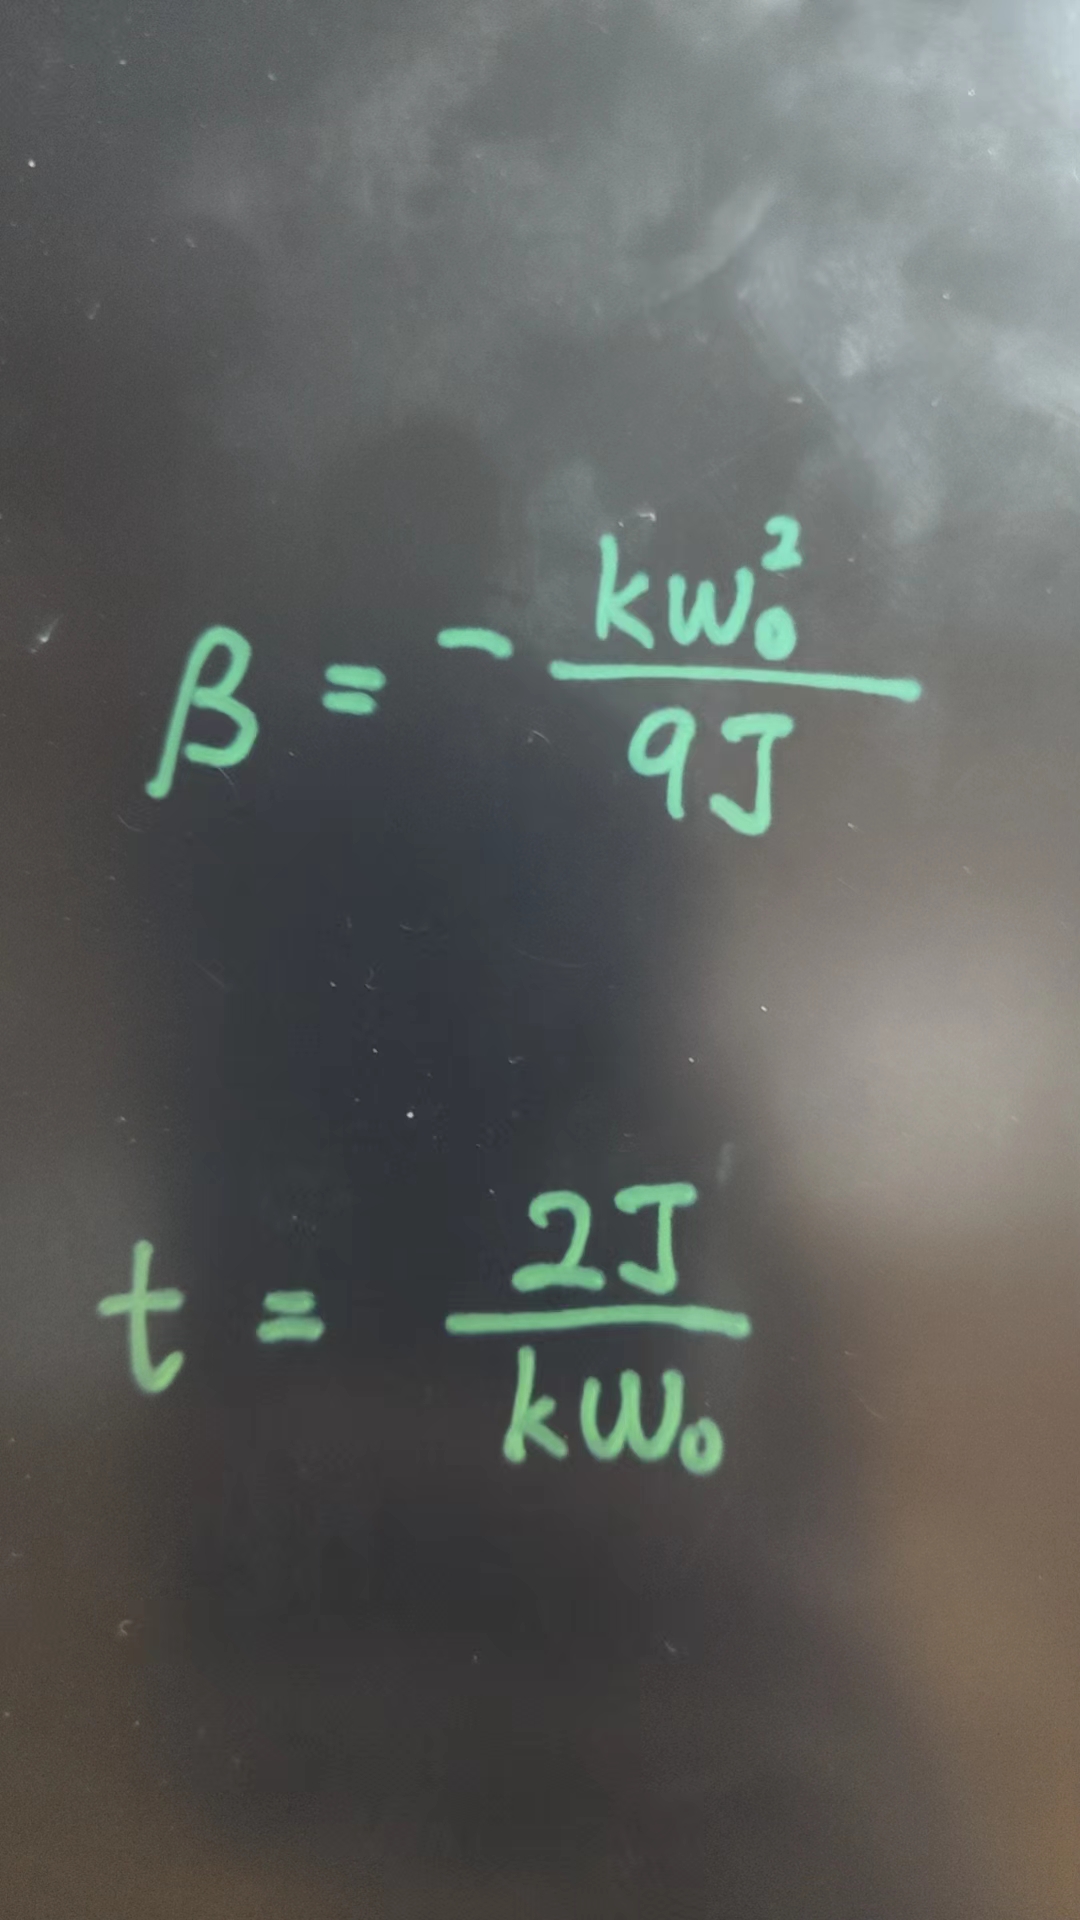 β = - kω₀² / 9J
t = 2J / kω₀